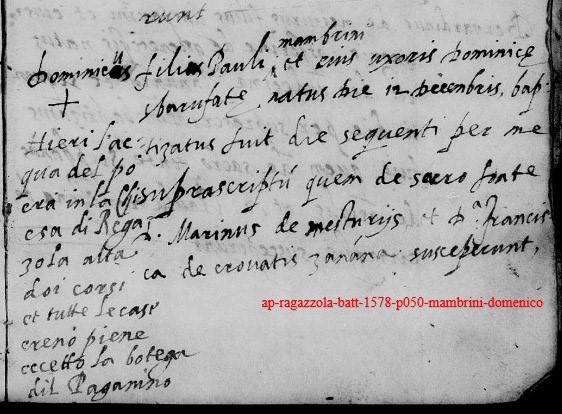 runt
Dominicus filius Pauli mambrini et eius uxoris Dominicę
sbarufate, natus die 12 decembris, bap-
tizatus fuit die sequenti per me
suprascriptū quem de sacro fonte
D. Marinus de mesturijs et Dª Francis
ca de crovatis zanána susceperunt,
Hieri l'ac
qua del pò
era in la chi
esa di Rega
zola alta
doi corsi
et tutte le case
ereno piene
eccetto la botega
dil Paganino
ap-ragazzola-batt-1578-p050-mambrini-domenico